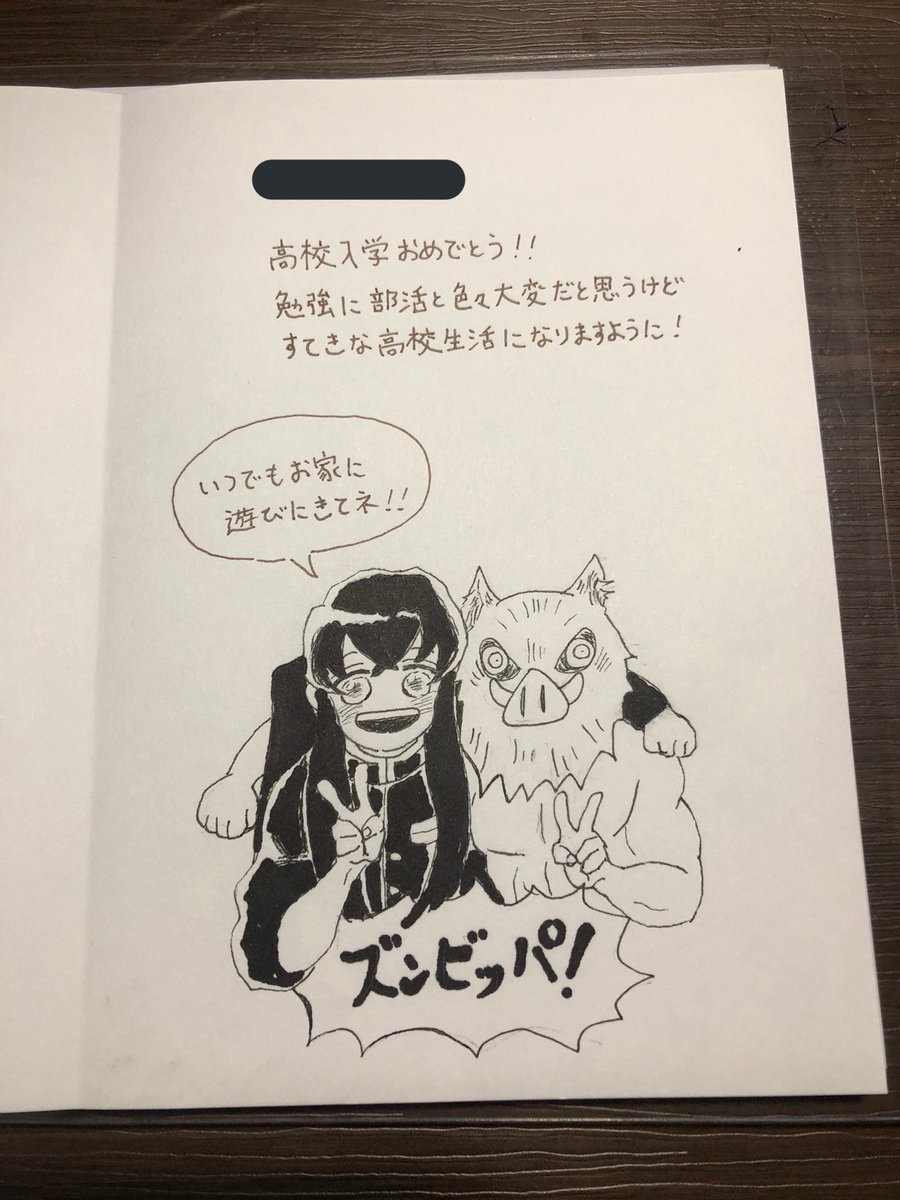 高校入学おめでとう!!
勉強に部活と色々大変だと思うけど
すてきな高校生活になりますように!
いつでもお家に
遊びにきてネ!!
ズンビッパ!